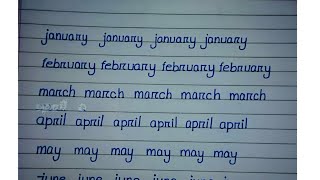 january january january january
february february february february
march march march march march
april april april april april april
may may may may may may
june june june june june june